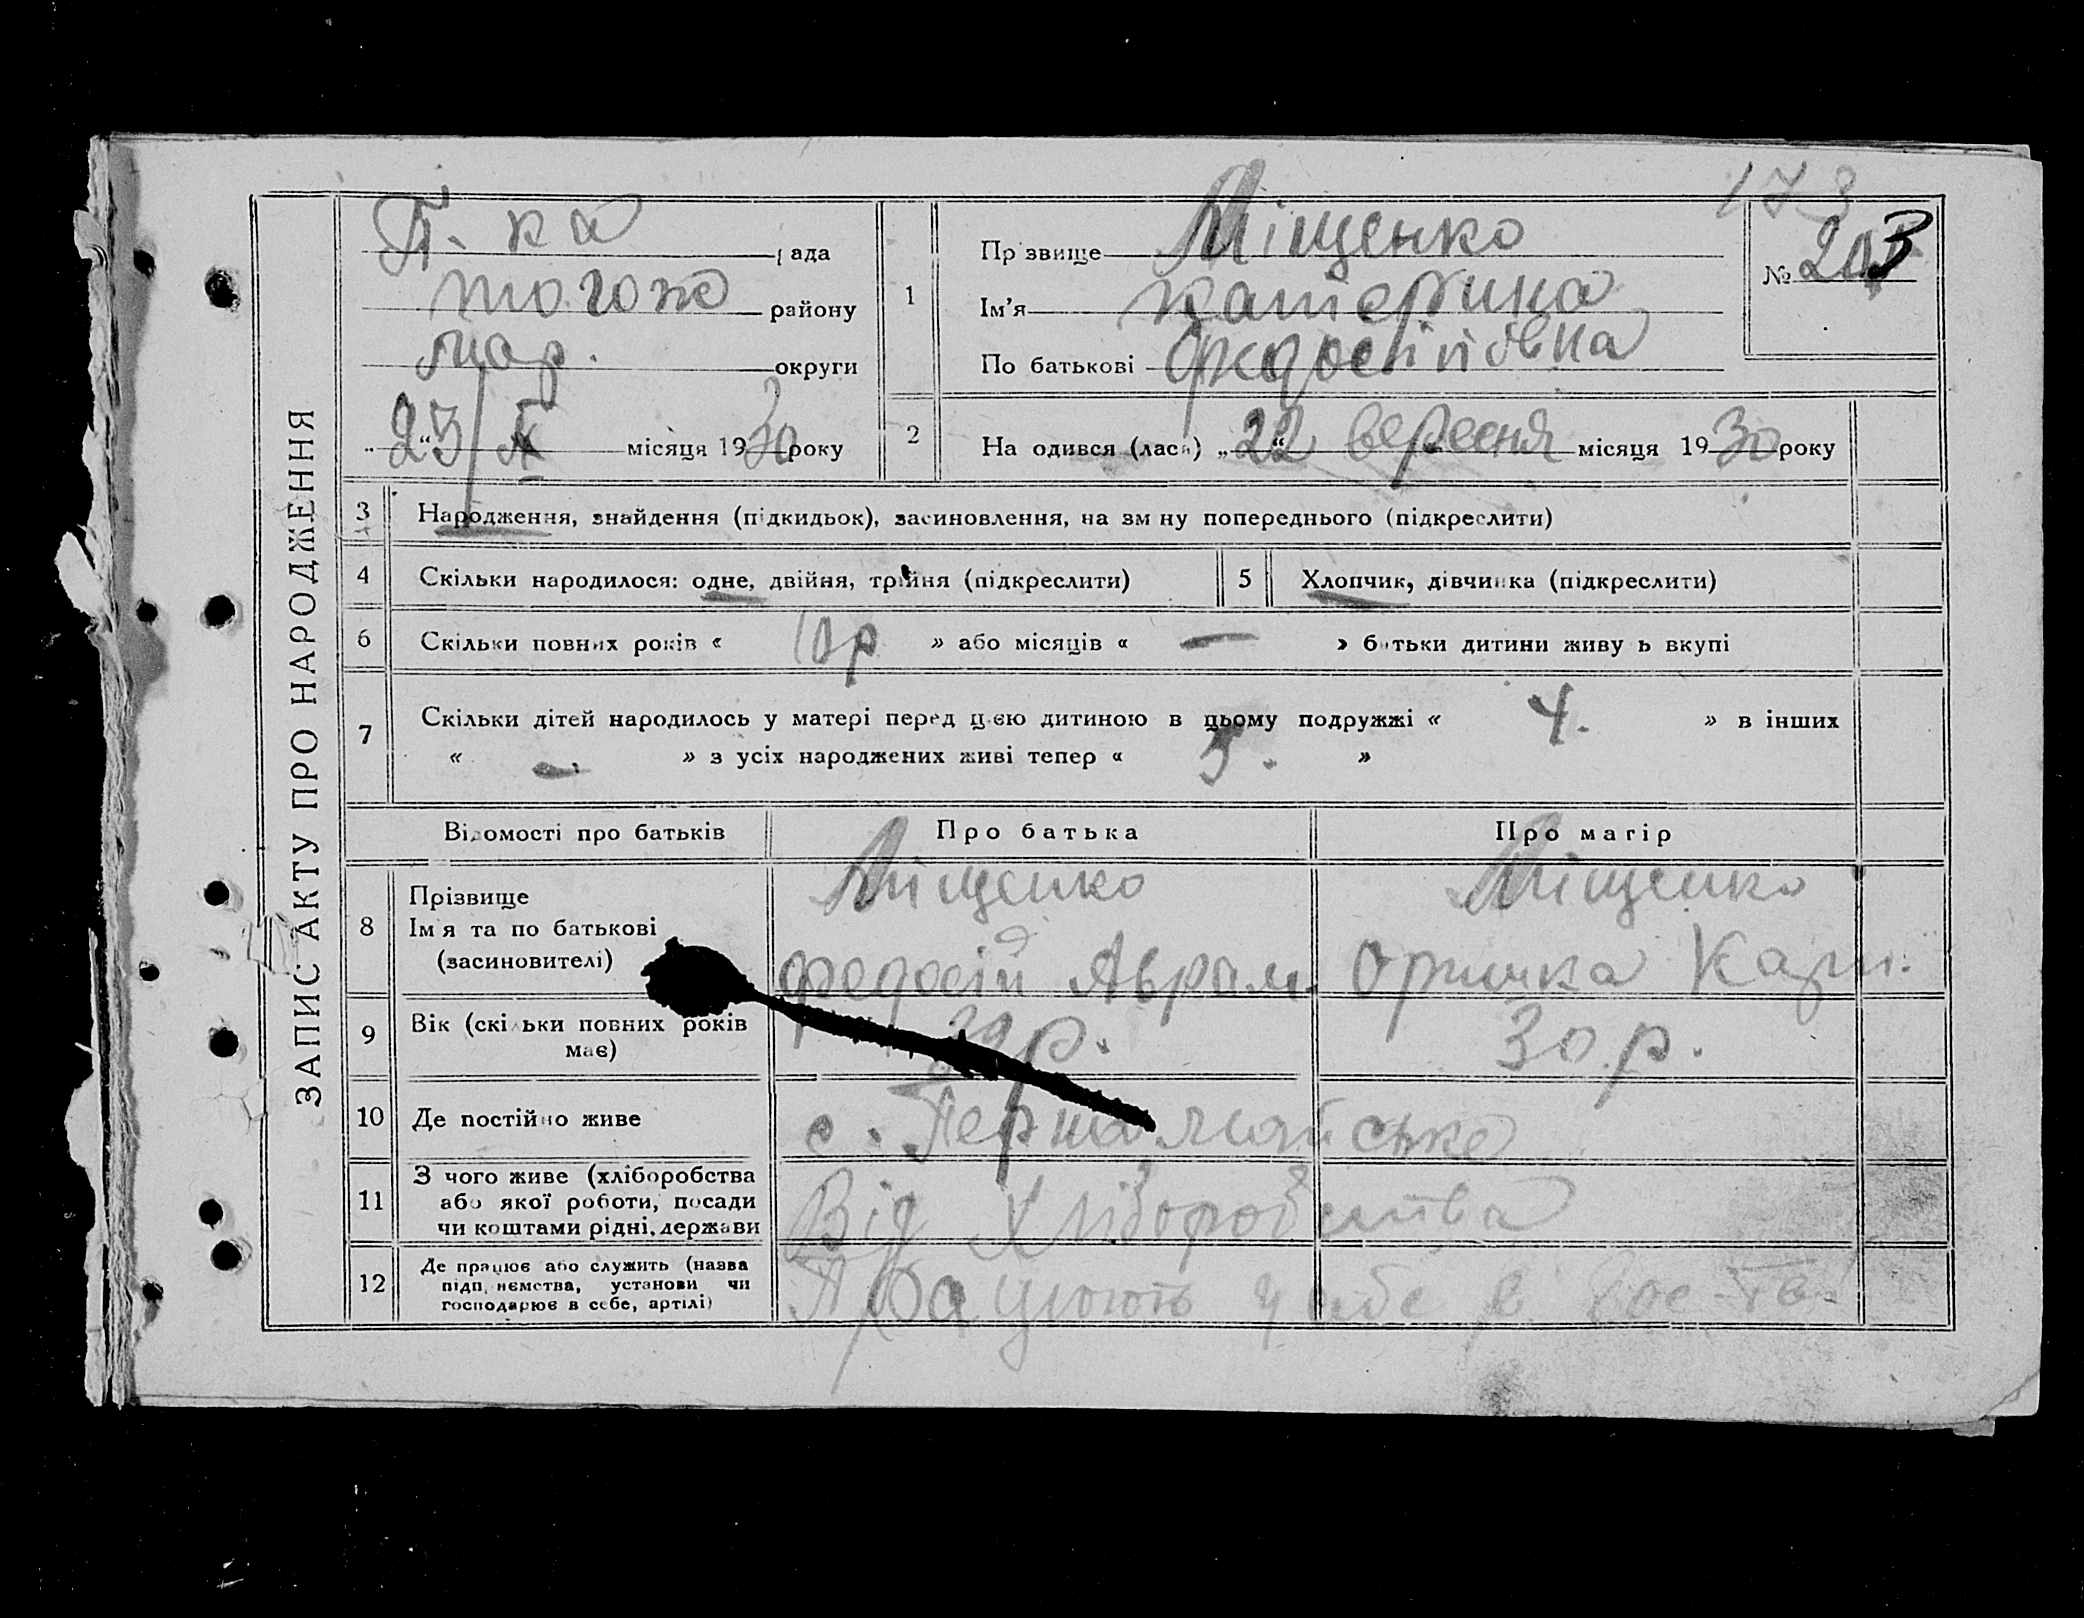 ЗАПИС АКТУ ПРО НАРОДЖЕННЯ
173
П-ка рада
тогож району
мар. округи
„23“ X місяця 1930 року
1
Прізвище Міщенко
Ім'я Катерина
По батькові
№ 203
2 Народився (лась) „22“ вересня місяця 1930 року
3 Народження, знайдення (підкидьок), засиновлення, на зміну попереднього (підкреслити)
4 Скільки народилося: одне, двійня, трійня (підкреслити)
5 Хлопчик, дівчинка (підкреслити)
6 Скільки повних років « 10 р » або місяців « — » батьки дитини живуть вкупі
7 Скільки дітей народилось у матері перед цією дитиною в цьому подружжі « 4. » в інших
« — » з усіх народжених живі тепер « 5. »
Відомості про батьків Про батька Про матір
8 Прізвище Міщенко Міщенко
Ім'я та по батькові
(засиновителі) Федосій Аврам. Оришка Карп.
9 Вік (скільки повних років має) р. 30 р.
10 Де постійно живе с. Першамайське
11 З чого живе (хліборобства
або якої роботи, посади
чи коштами рідні, держави Від хліборобства
12 Де працює або служить (назва
підприємства, установи чи
господарює в себе, артілі) Працюють у себе в гос-тві